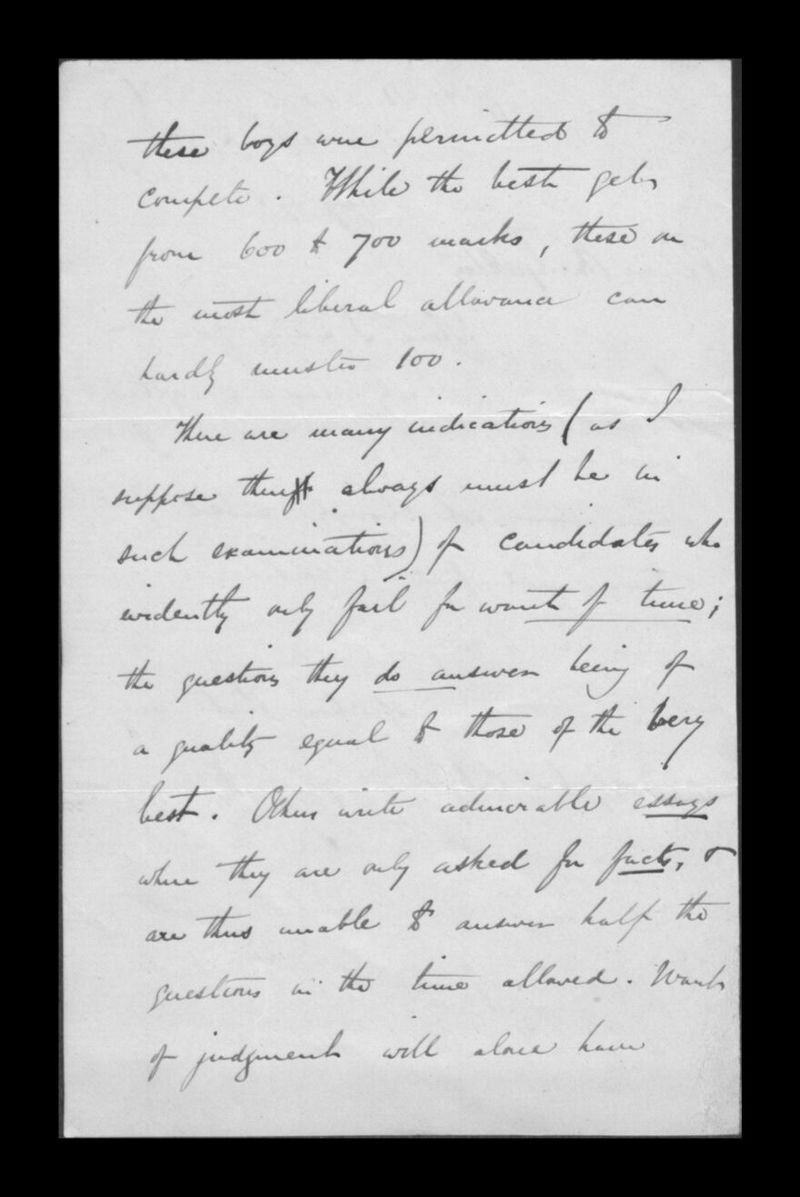 these boys were permitted to
compete. While the best gets
from 600 to 700 marks, these on
the most liberal allowance can
hardly muster 100.
There are many indications (as I
suppose there always must be in
such examinations) of candidates who
evidently only fail for want of time;
the questions they do answer being of
a quality equal to those of the very
best. Others write admirable essays
where they are only asked for facts, &
are thus unable to answer half the
questions in the time allowed. Want
of judgment will alone have